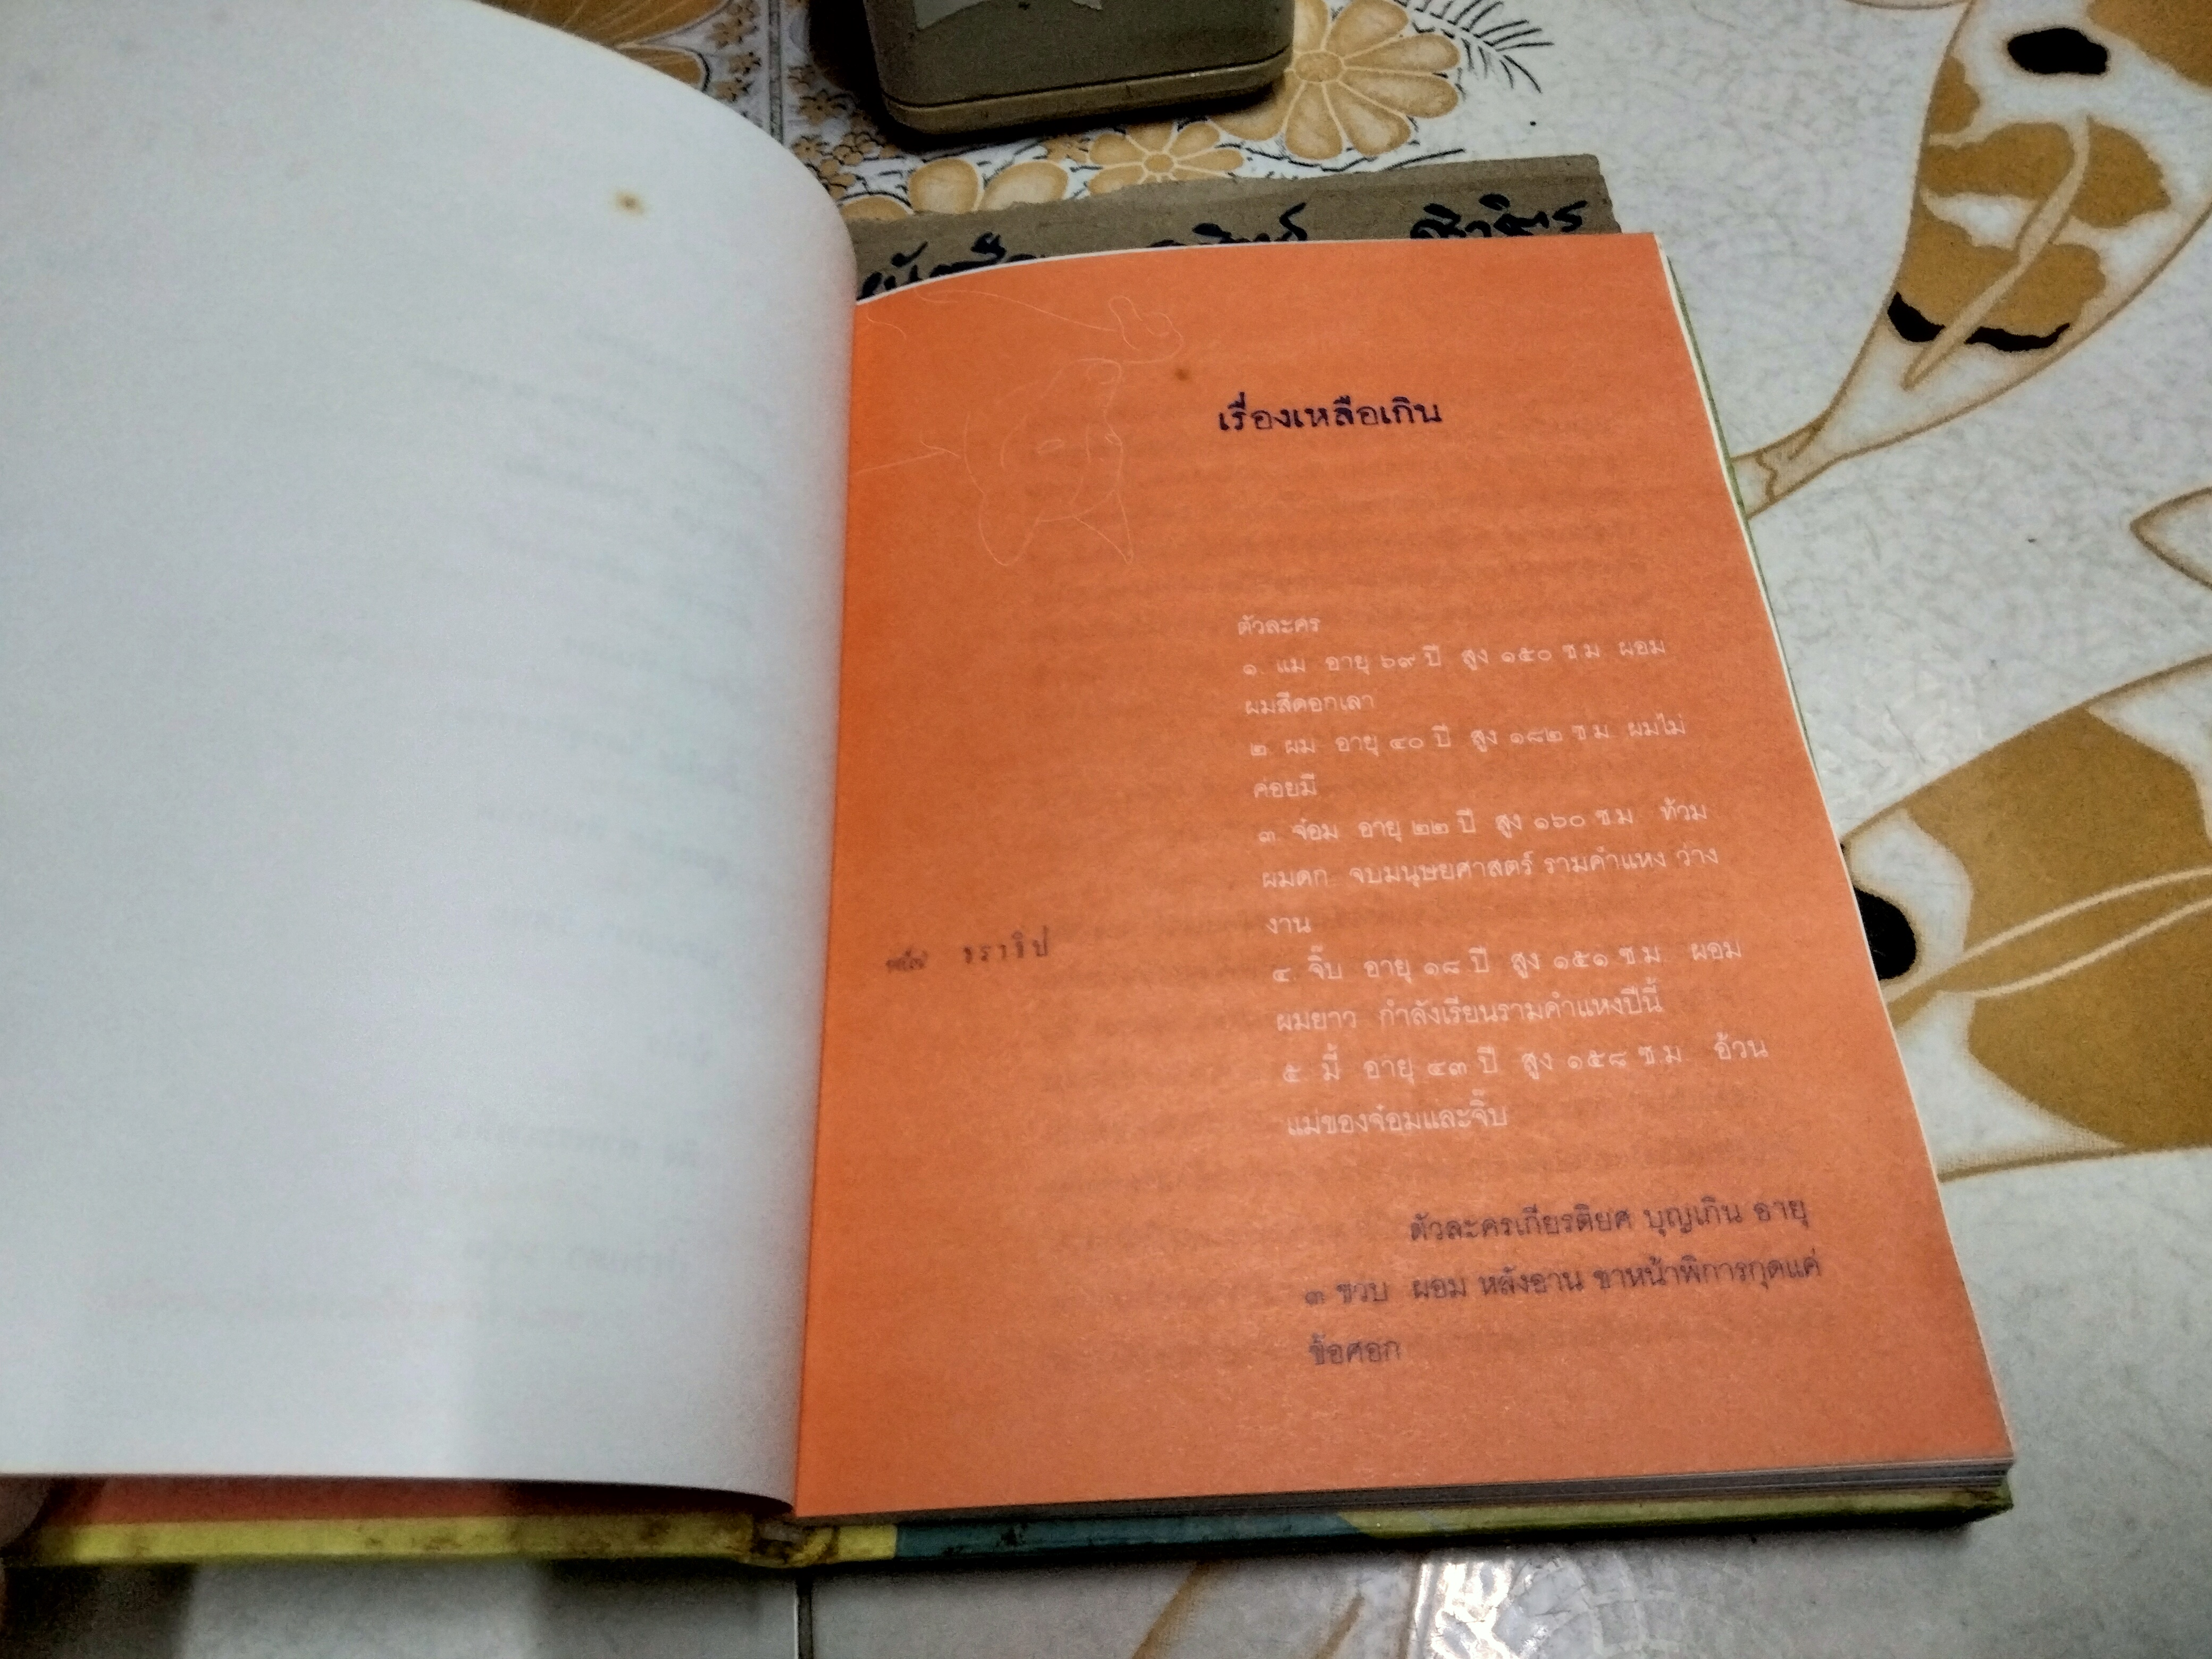 เรื่องเหลือเกิน
ตัวละคร
๑. แม่ อายุ ๖๙ ปี สูง ๑๕๐ ซ.ม. ผอม
ผมสีดอกเลา
๒. ผม อายุ ๔๐ ปี สูง ๑๘๒ ซ.ม. ผมไม่
ค่อยมี
๓. จ๋อม อายุ ๒๒ ปี สูง ๑๖๐ ซ.ม. ท้วม
ผมดก จบมนุษยศาสตร์ รามคำแหง ว่าง
งาน
๔. จิ๊บ อายุ ๑๘ ปี สูง ๑๕๑ ซ.ม. ผอม
ผมยาว กำลังเรียนรามคำแหงปีนี้
๕. มี้ อายุ ๔๓ ปี สูง ๑๕๘ ซ.ม. อ้วน
แม่ของจ๋อมและจิ๊บ
ตัวละครเกียรติยศ บุญเกิน อายุ
๓ ขวบ ผอม หลังอาน ขาหน้าพิการกุดแค่
ข้อศอก